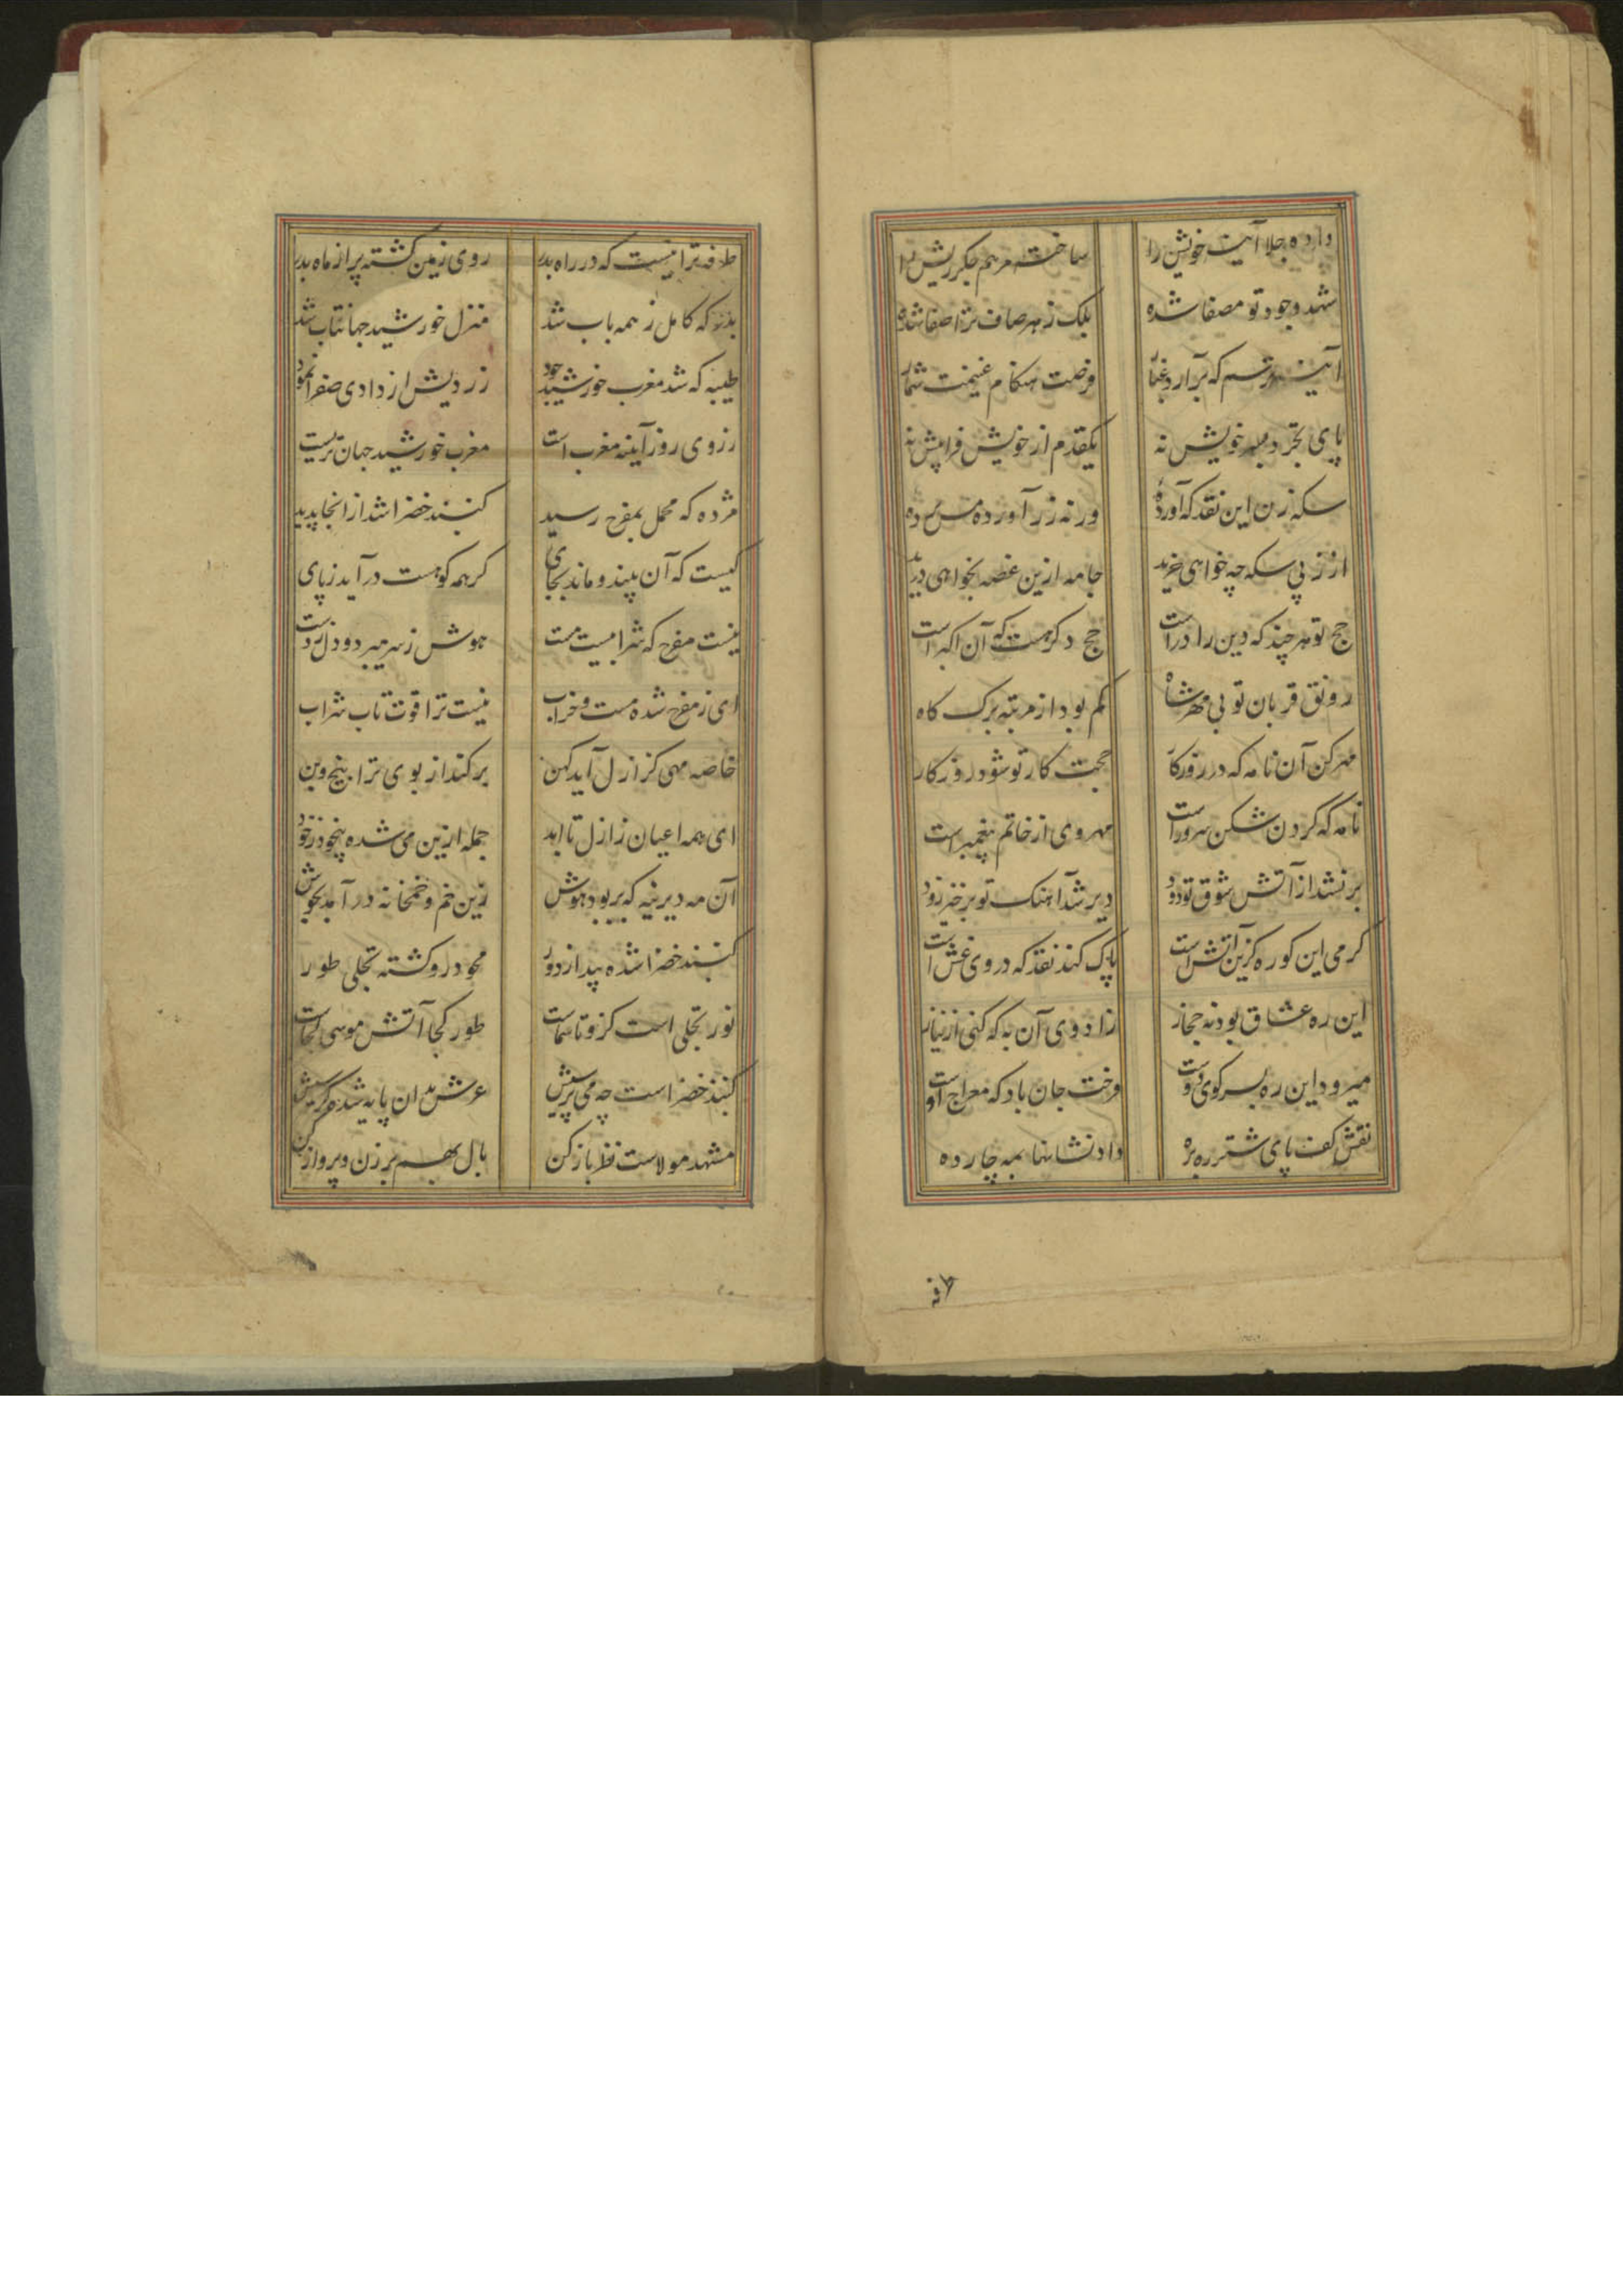 داده جلا آینه خویش را ساخته مرهم جگر ریش را
شهد وجود تو مصفا شده بلک ز هر صاف تر اصفا شده
آینه ترسم که برآرد غبار فرصت هنکام غنیمت شمار
پای تجرد بسر خویش نه یکقدم از خویش فراپیش نه
سکه زن این نقد که آورده ورنه زر آورده مس برده
از زر بی سکه چه خواهی خرید جامه ازین غصه بخواهی درید
حج تو هر چند که دین را در است حج دکر هست که آن اکبر است
رونق قربان تو بی مهر شاه کم بود از مرتبه برک کاه
مهر کن آن نامه که در روزکار حجت کار تو شود روز کار
نامه که کردن شکن سرور است مهر وی از خاتم پیغمبر است
بر نشد از آتش شوق تو دود دیر شد آهنک تو برخیز زود
کرمی این کوره کزین آتش است پاک کند نقد که در وی غش است
این ره عشاق بود نه حجاز زاد وی آن به که کنی از نیاز
میرود این ره بسر کوی دوست وخت جان باد که معراج اوست
نقش کف پای شتر ره بره داد نشانها بمه چارده
طرفه
طرفه تر اینست که در راه بدر روی زمین کشته پر از ماه بدر
بدر که کامل ز همه باب شد منزل خورشید جهانتاب شد
طیبه که شد مغرب خورشید جود زردیش از وادی صفرا نمود
رزوی روز آینه مغرب است مغرب خورشید جهان یثربست
مژده که محمل بمفرح رسید کنبد خضرا شد از انجا پدید
کیست که آن بیند و ماند بجای کر همه کوهست در آید ز پای
نیست مفرح که شرابیست مست هوش ز سر میبرد و دل ز دست
ای ز مفرح شده مست و خراب نیست ترا قوت تاب شراب
خاصه میی کز ازل آید کهن بر کند از بوی ترا بیخ و بن
ای همه اعیان ز ازل تا ابد جمله ازین می شده بیخود ز خود
آن مه دیرینه که بربود هوش زین خم و خمخانه در آمد بجوش
کنبد خضرا شده پیدا ز دور محو در و کشته تجلی طور
نور تجلی است کزو تا سماست طور کجا آتش موسی کجاست
کنبد خضراست چه می پرسیش عرش بدان پایه شده کرسیش
مشهد مولاست نظر باز کن بال بهم بر زن و پرواز کن